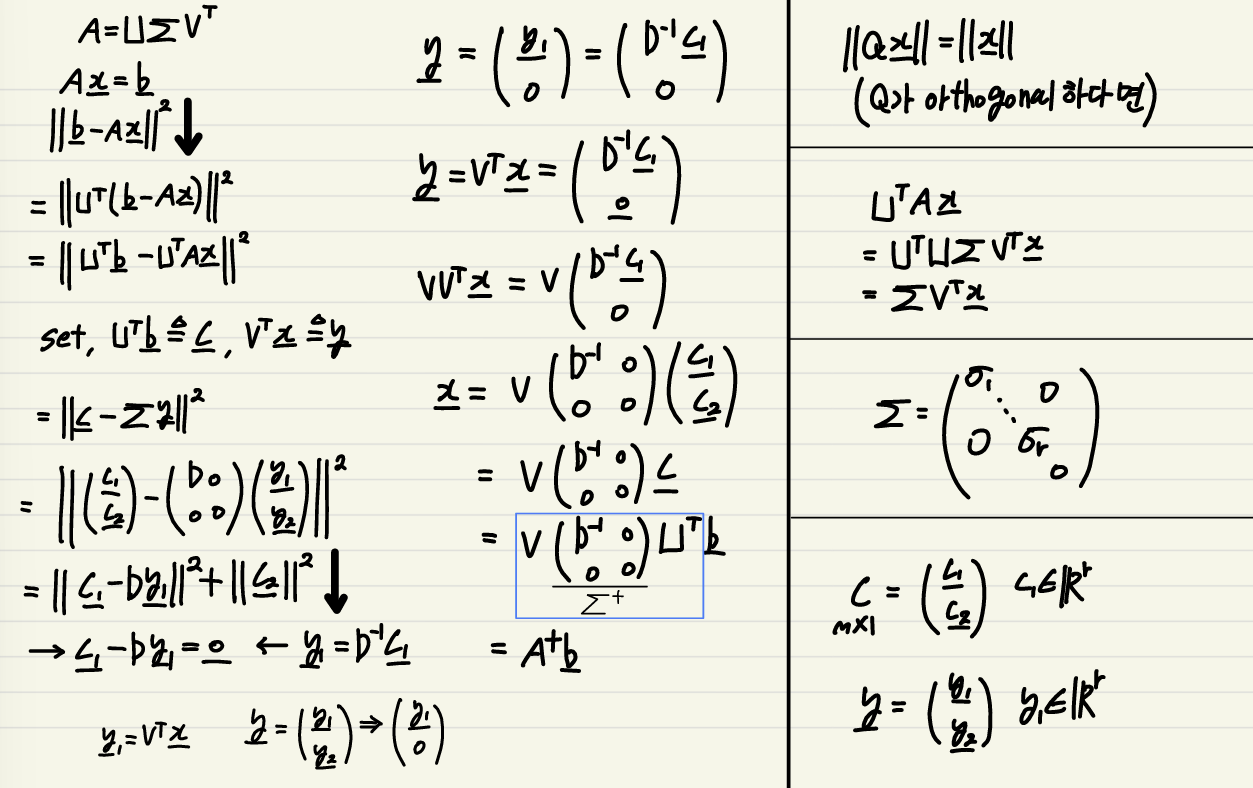 A = UΣVᵀ
Ax = b
||b - Ax||² ↓
= ||Uᵀ(b - Ax)||²
= ||Uᵀb - UᵀAx||²
set, Uᵀb ≜ c, Vᵀx ≜ y
= ||c - Σy||²
= ||(c₁ / c₂) - (D 0 / 0 0)(y₁ / y₂)||²
= ||c₁ - Dy₁||² + ||c₂||² ↓
→ c₁ - Dy₁ = 0 ← y₁ = D⁻¹c₁
y₁ = Vᵀx y = (y₁ / y₂) ⇒ (y₁ / 0)
y = (y₁ / 0) = (D⁻¹c₁ / 0)
y = Vᵀx = (D⁻¹c₁ / 0)
VVᵀx = V(D⁻¹c₁ / 0)
x = V(D⁻¹ 0 / 0 0)(c₁ / c₂)
= V(D⁻¹ 0 / 0 0)c
= V(D⁻¹ 0 / 0 0)Uᵀb
Σ⁺
= A⁺b
||Qx|| = ||x||
(Q가 orthogonal 하다면)
UᵀAx
= UᵀUΣVᵀx
= ΣVᵀx
Σ = (σ₁ ⋱ 0 / 0 σᵣ 0)
c = (c₁ / c₂) c₁∈ℝʳ
m×1
y = (y₁ / y₂) y₁∈ℝʳ